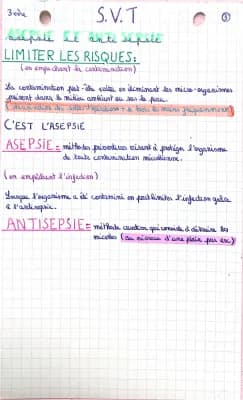 3ème S.V.T ①
asepsie et anti sepsie
LIMITER LES RISQUES:
(en empêchant la contamination)
La contamination peut-être évitée en éliminant les micro-organismes
présent dans le milieu ambiant ou sur la peau.
C'EST L'ASEPSIE
ASEPSIE = méthodes préventives visant à protéger l'organisme
de toute contamination microbienne.
(en empêchant l'infection)
Lorsque l'organisme a été contaminé on peut limiter l'infection grâce
à l'antisepsie.
ANTISEPSIE = méthode curative qui consiste à détruire les
microbes (au niveau d'une plaie par ex)